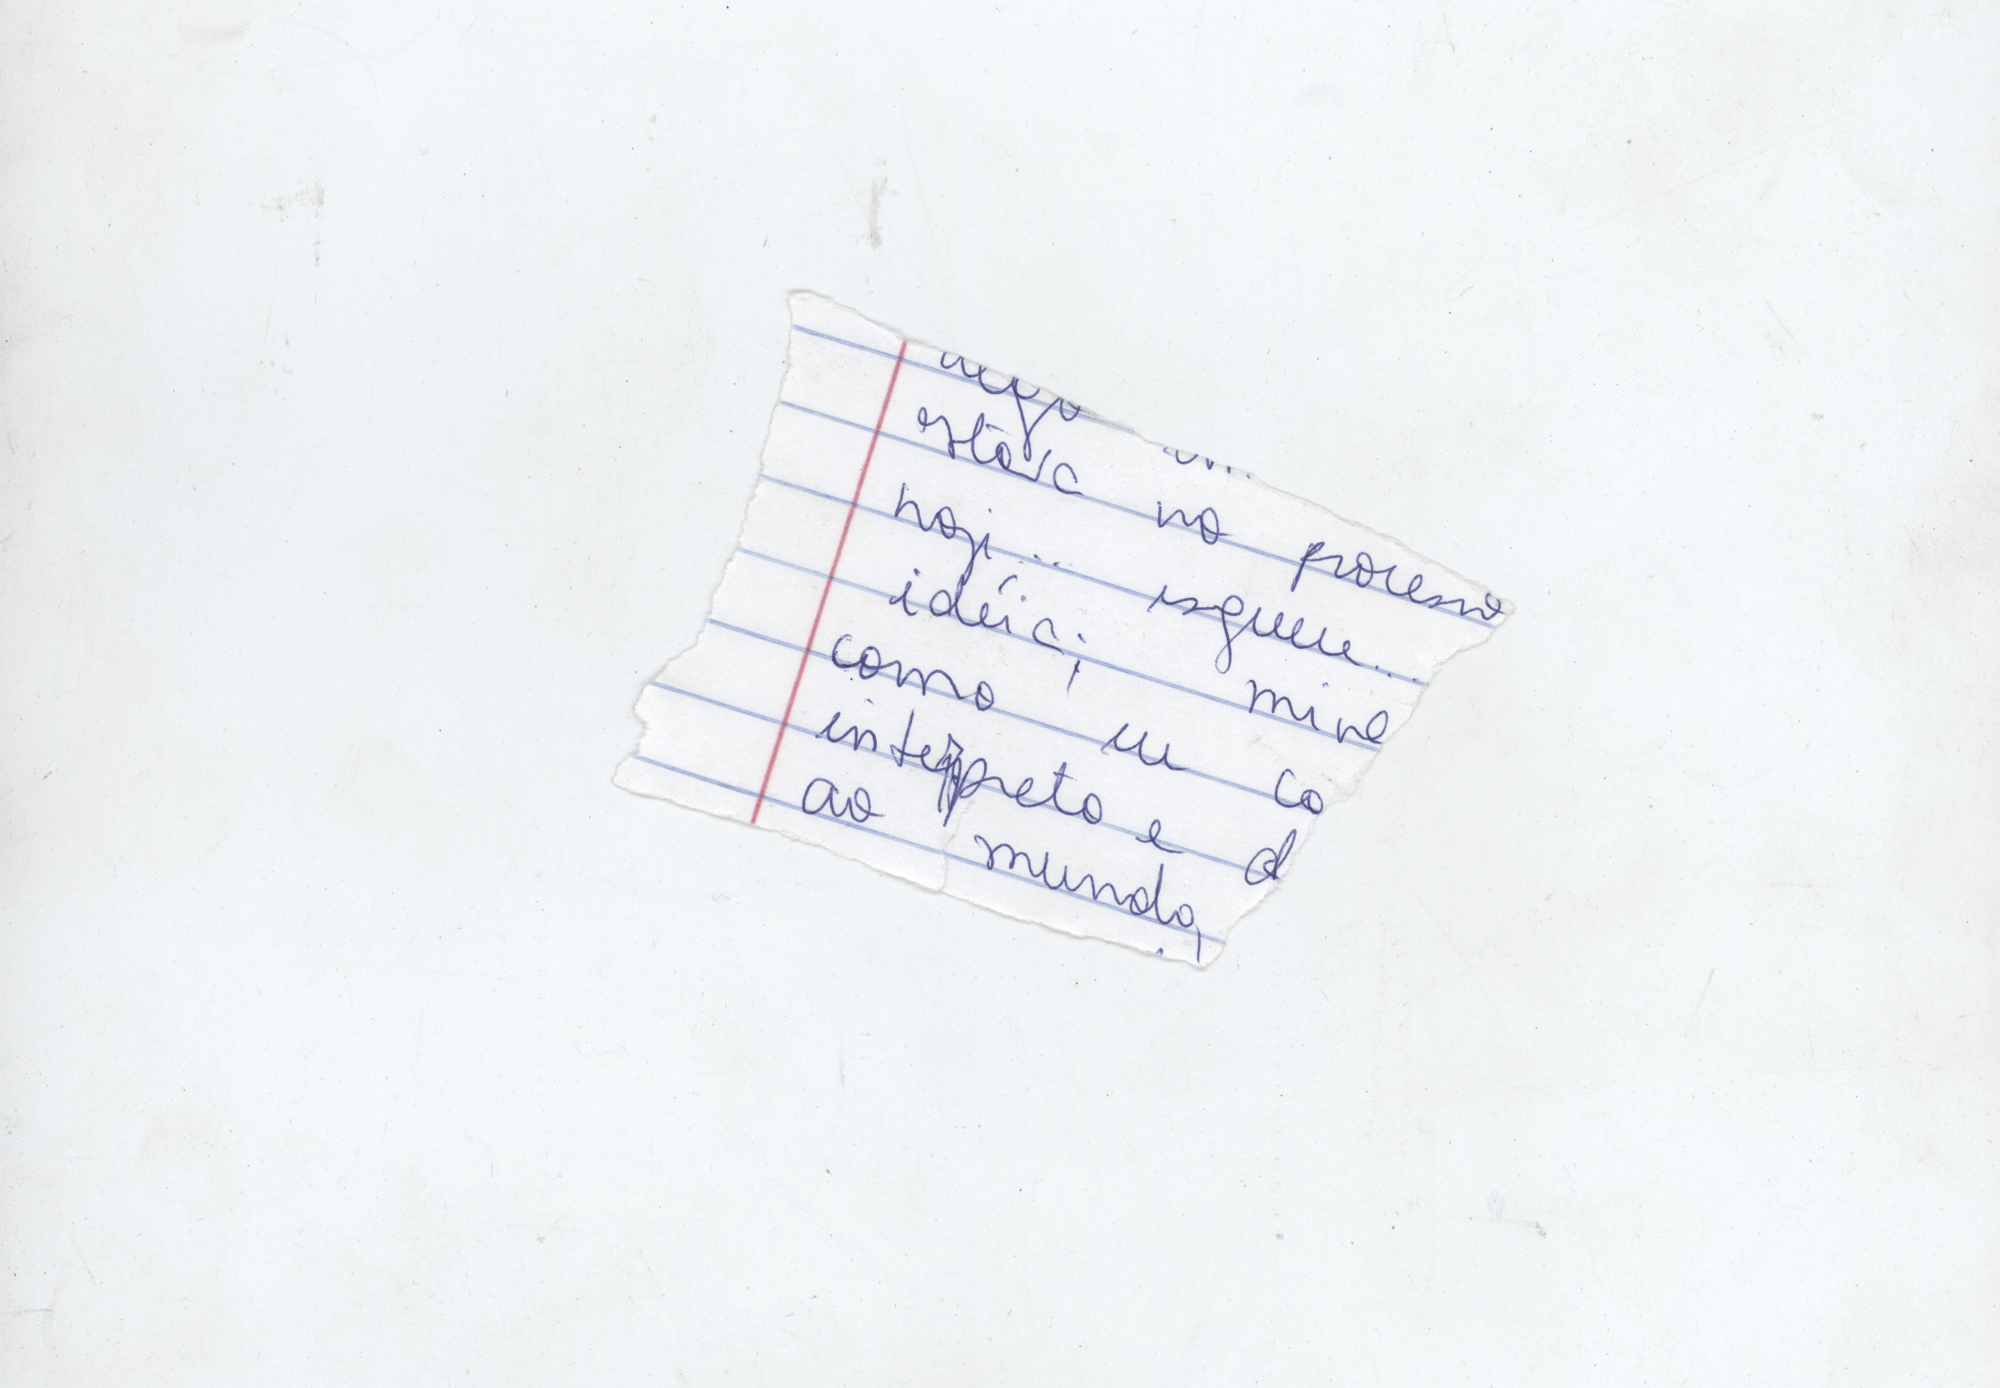 algo
estava no processo
hoj... esquece...
idéia; minh
como eu co
interpreto e d
ao mundo,